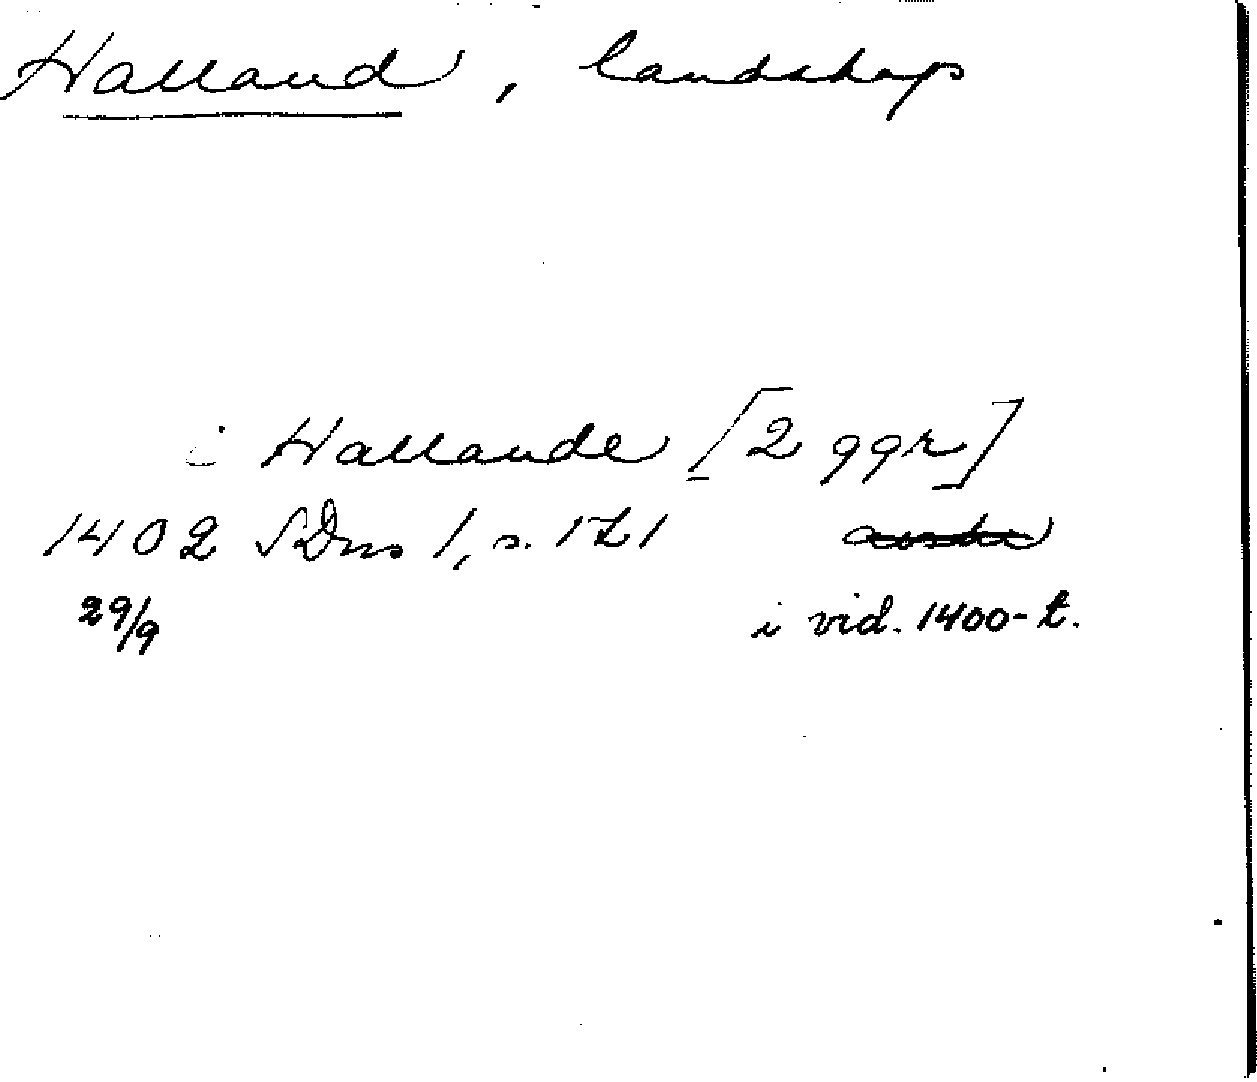 Halland, landskap
i Hallande [2 ggr]
1402 SDns 1, s. 121
29/9 i vid. 1400-t.